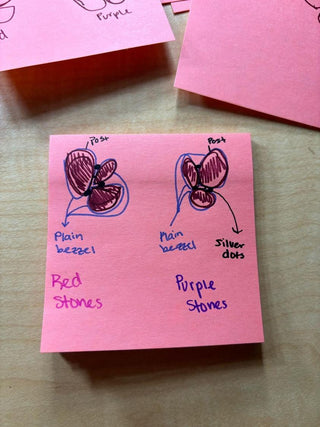 d
Purple
Post
Post
Plain
bezzel
Plain
bezzel
Silver
dots
Red
Stones
Purple
Stones